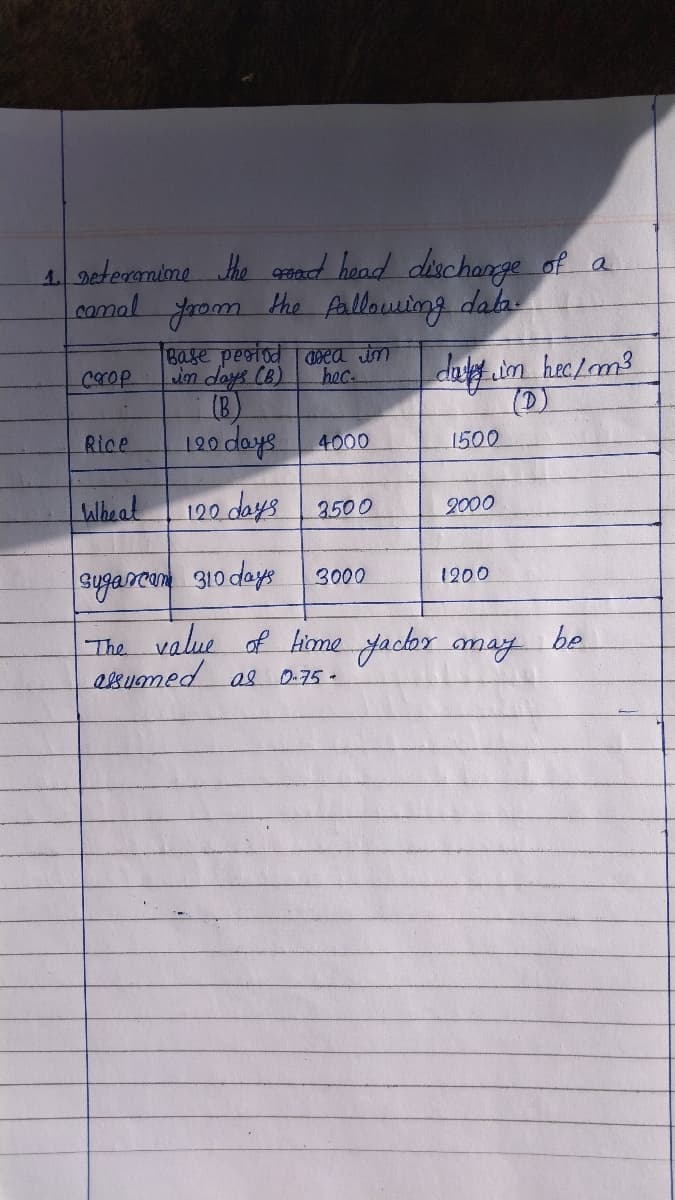 1. Determine the head discharge of a
canal from the following data.
Crop | Base period in days (B) | area in hec. | duty in hec/m3
(B) | (D)
Rice | 120 days | 4000 | 1500
Wheat | 120 days | 3500 | 2000
Sugarcane | 310 days | 3000 | 1200
The value of time factor may be
assumed as 0.75.